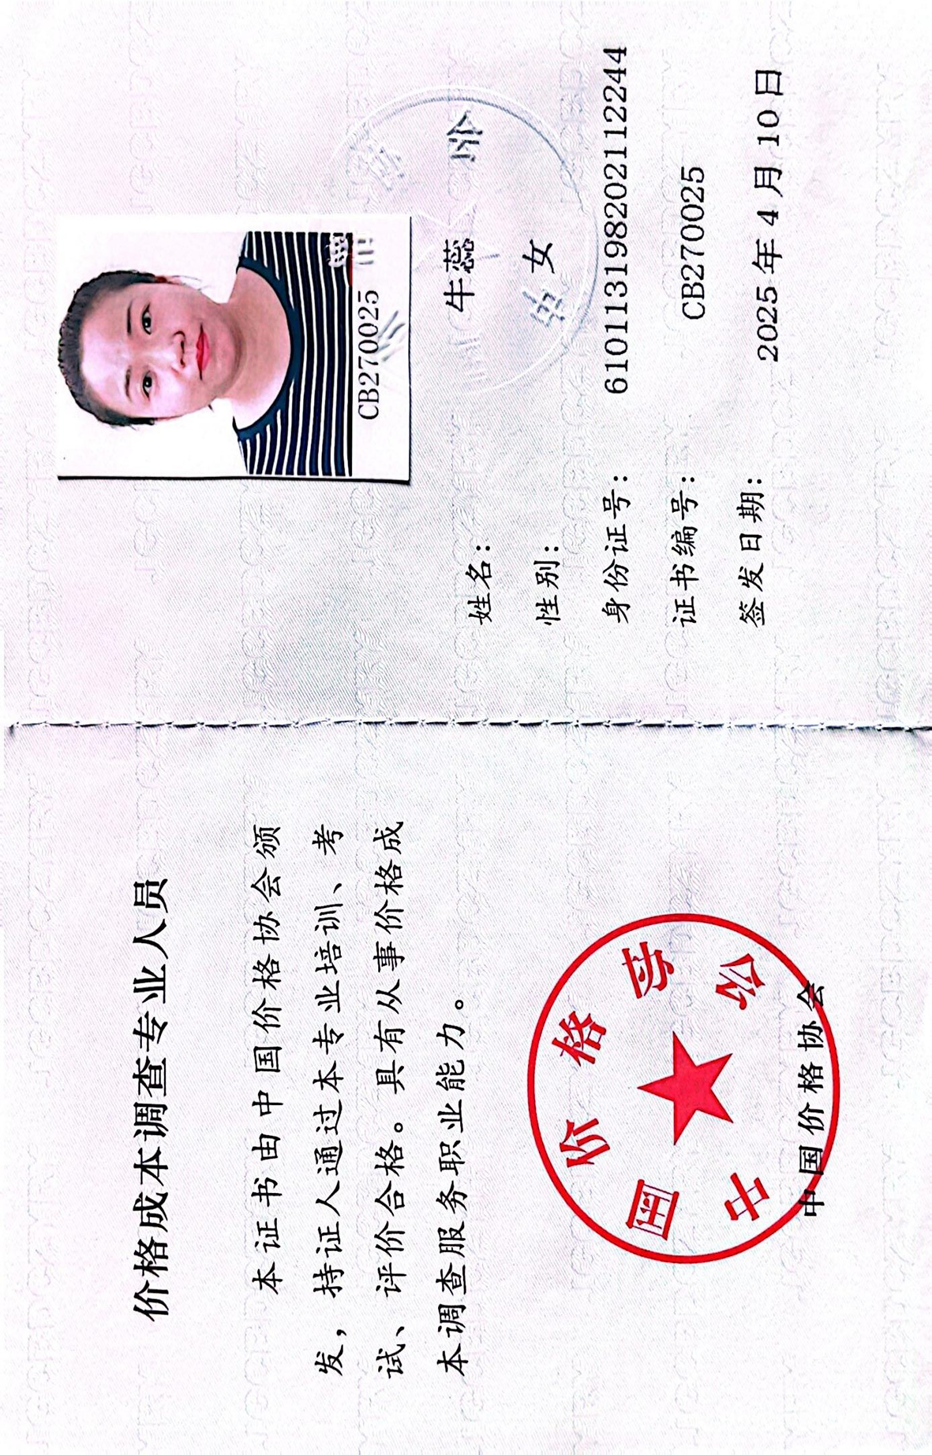 价格成本调查专业人员
本证书由中国价格协会颁
发，持证人通过本专业培训、考
试、评价合格。具有从事价格成
本调查服务职业能力。
中国价格协会
中国价格协会
CB270025
姓名： 牛蕊
性别： 女
身份证号： 610113198202112244
证书编号： CB270025
签发日期： 2025年4月10日